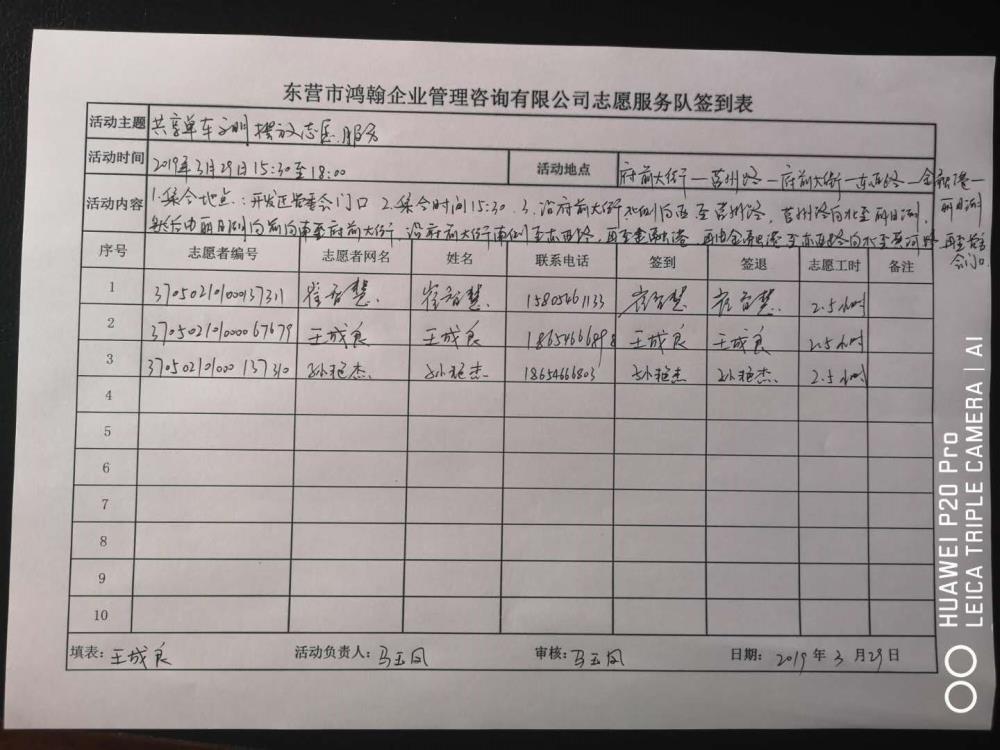 东营市鸿翰企业管理咨询有限公司志愿服务队签到表
活动主题 共享单车文明摆放志愿服务
活动时间 2019年3月29日15:30至18:00 活动地点 府前大街—莒州路—府前大街—东西路—金融港—
活动内容 1.集合地点:开发区管委会门口 2.集合时间15:30 3.沿府前大街北侧向西至莒州路,莒州路向北至
府前大街,沿府前大街南侧至东西路,再至金融港,再由金融港至东西路向北至黄河路
序号 志愿者编号 志愿者网名 姓名 联系电话 签到 签退 志愿工时 备注
1 370502101000137311 崔智慧. 崔智慧. 15805461133 崔智慧 崔智慧. 2.5小时
2 37050210100067679 王成良 王成良 18654666898 王成良 王成良 2.5小时
3 370502101000137310 孙艳杰. 孙艳杰. 18654666803 孙艳杰 孙艳杰. 2.5小时
4
5
6
7
8
9
10
填表:王成良 活动负责人:马玉凤 审核:马玉凤 日期:2019年3月29日
HUAWEI P20 Pro
LEICA TRIPLE CAMERA | AI